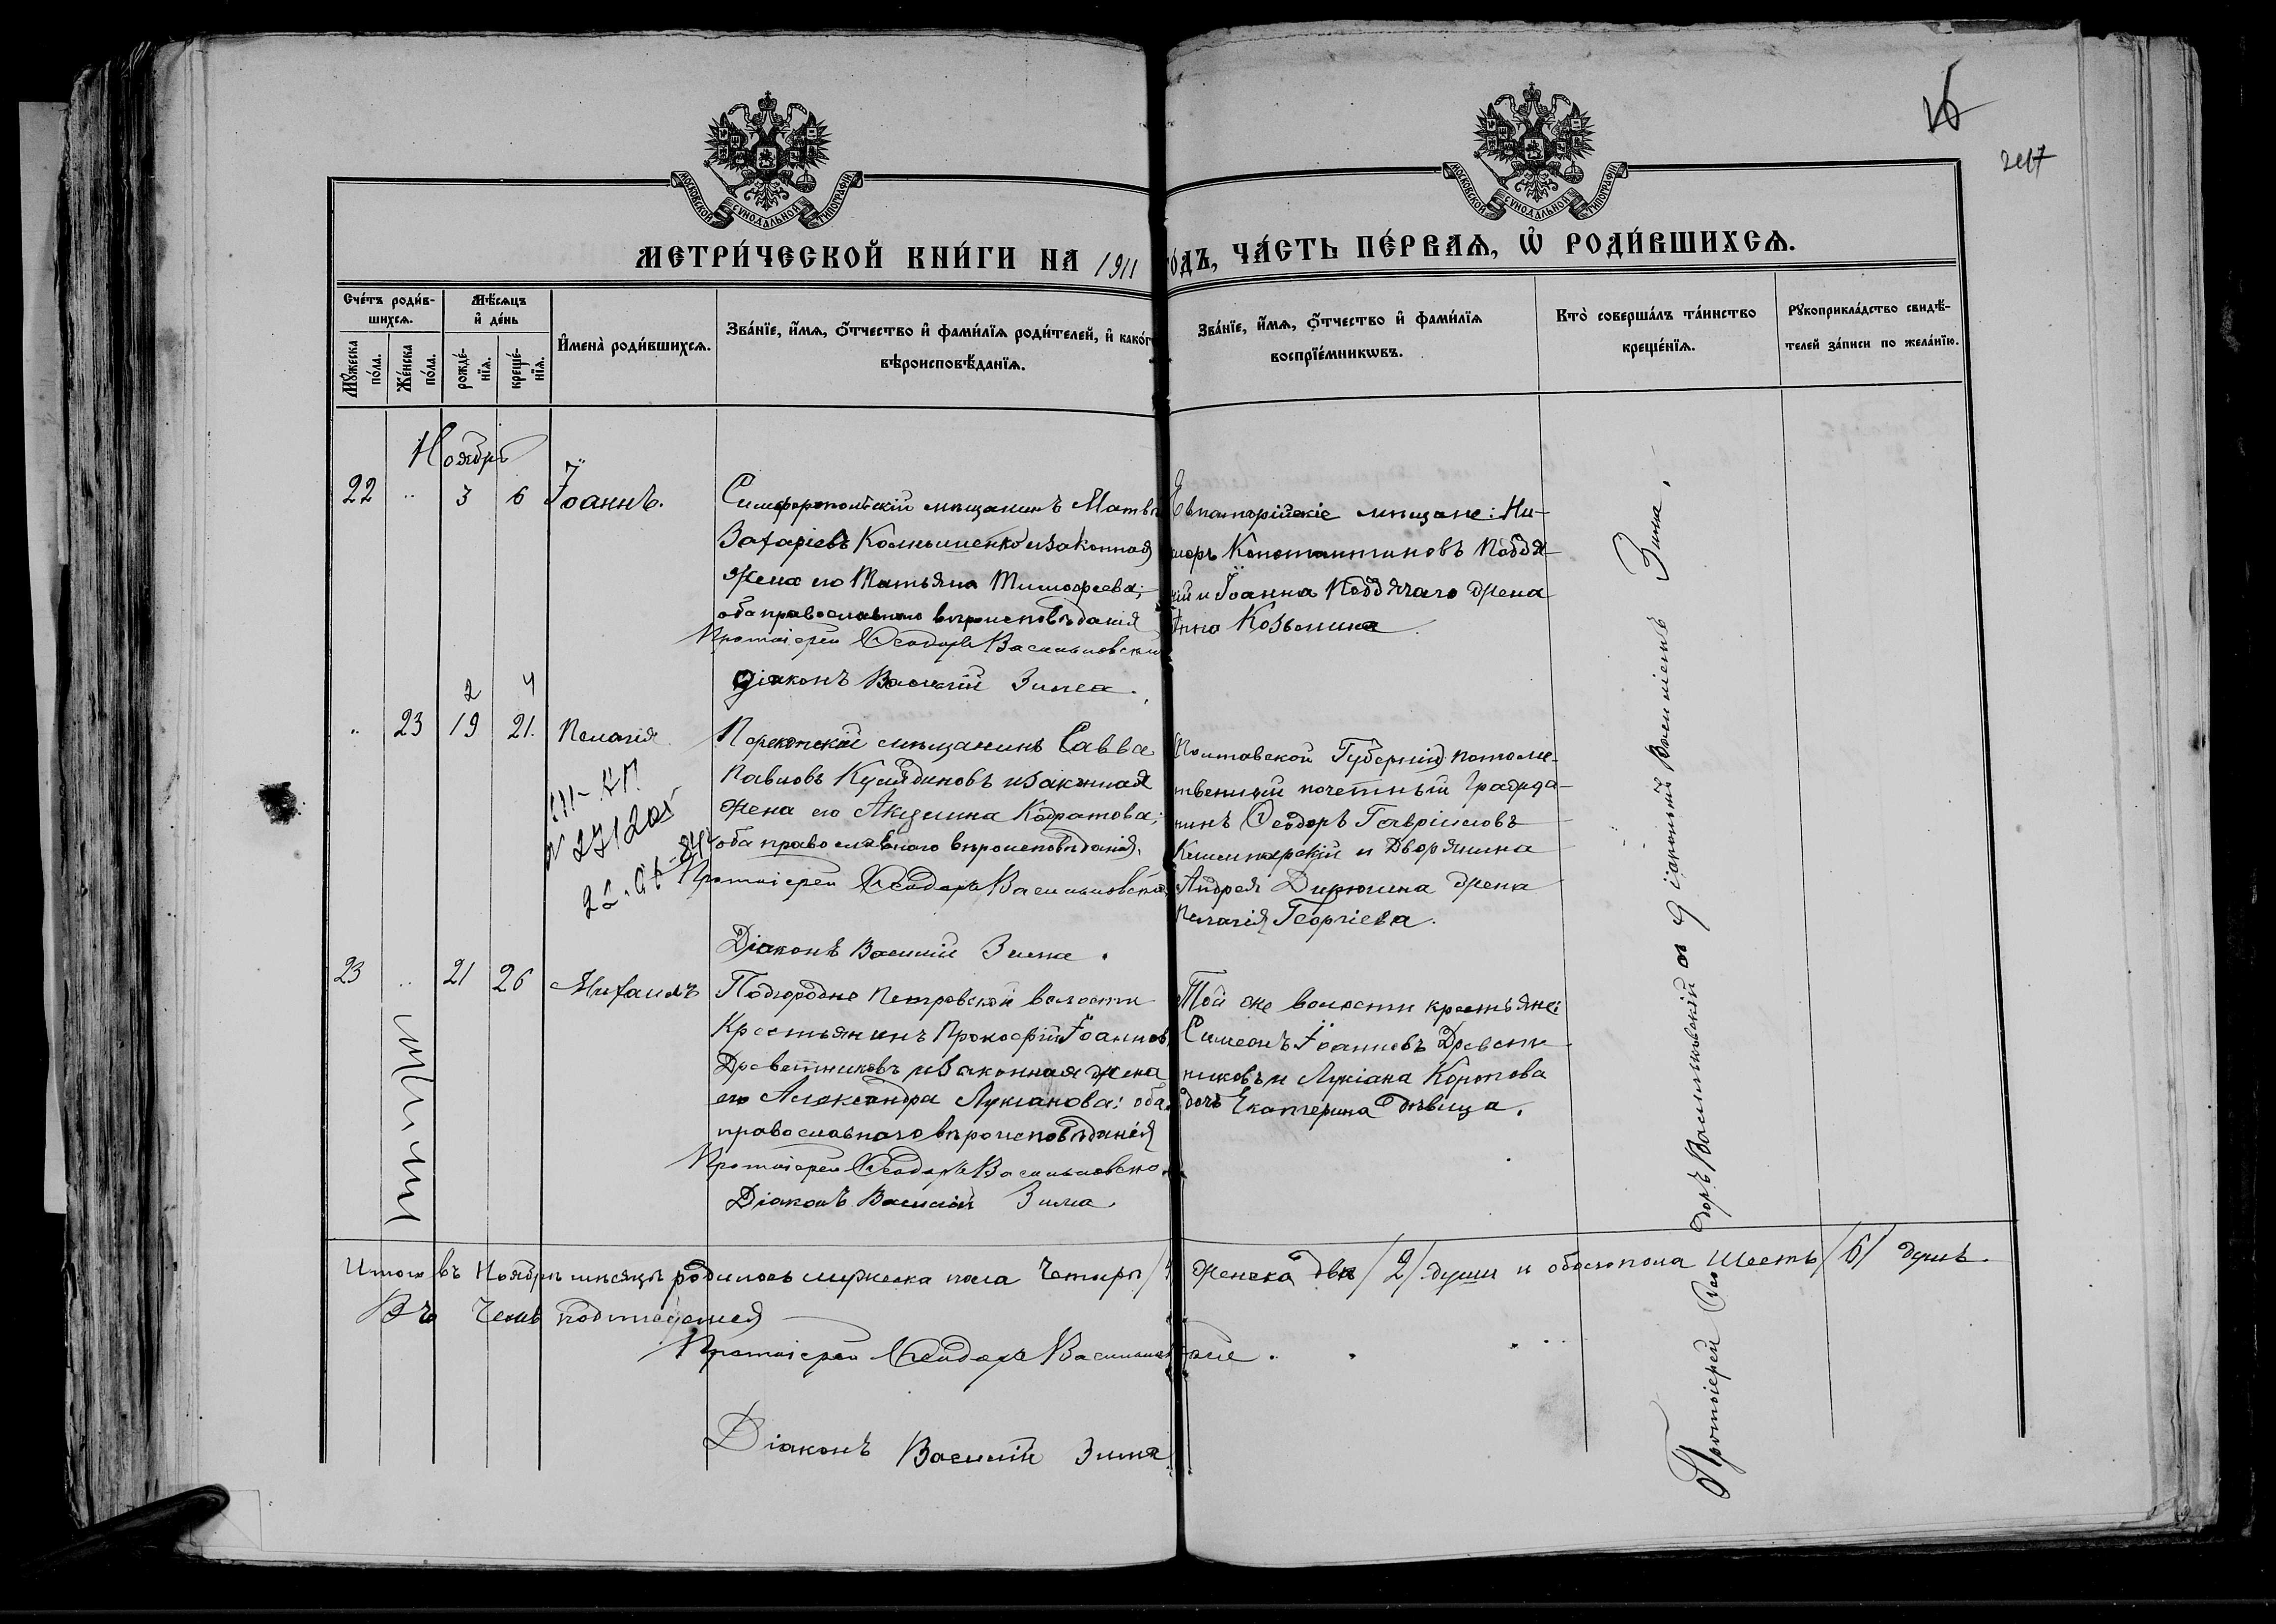 247
МОСКОВСКОЙ СУНОДАЛЬНОЙ ТИПОГРАФІИ
МОСКОВСКОЙ СУНОДАЛЬНОЙ ТИПОГРАФІИ
МЕТРИ́ЧЕСКОЙ КНИ́ГИ НА 1911 ГО́ДЪ, ЧА́СТЬ ПЕ́РВАѦ, Ѡ҆ РОДИ́ВШИХСѦ.
Сче́тъ роди́в-
шихсѧ.
Мꙋ́жеска по́ла.
Же́нска по́ла.
Мѣ́сѧцъ
и҆ де́нь
рожде́-
нїѧ.
креще́-
нїѧ.
И҆мена̀ роди́вшихсѧ.
Зва́нїе, и҆́мѧ, ѻ҆́тчество и҆ фами́лїѧ роди́телей, и҆ како́гѡ
вѣроисповѣ́данїѧ.
Зва́нїе, и҆́мѧ, ѻ҆́тчество и҆ фами́лїѧ
воспрїе́мникѡвъ.
Кто̀ соверша́лъ та́инство
креще́нїѧ.
Рꙋкоприкла́дство свидѣ́-
телей за́писи по жела́нїю.
Ноябрь
22 .. 3 6 Іоаннъ.
Симферопольскій мѣщанинъ Матвѣй
Захаріевъ и законная
жена его Татьяна Тимофеева;
оба православнаго вѣроисповѣданія
Протоіерей Ѳеодоръ Васильковскій
Діаконъ Василій Зима.
Евпаторійскіе мѣщане: Ни-
Константиновъ Поддя-
чій и Іоанна Поддячаго жена
Анна Козьмина.
2 4
.. 23 19 21. Пелагія
Перекопскій мѣщанинъ Савва
Павловъ и законная
жена его Акилина Кодратова;
оба православнаго вѣроисповѣданія.
Протоіерей Ѳеодоръ Васильковскій
Діаконъ Василій Зима.
Полтавской Губерніи потом-
ственный почетный гражда-
нинъ Ѳеодоръ Гавріиловъ
и Дворянина
Андрея жена
Пелагія Георгіева.
23 .. 21 26 Михаилъ
Подгородне Петровской волости
Крестьянинъ Прокофій Іоанновъ
Древетняковъ и законная жена
его Александра Лукіанова; оба
православнаго вѣроисповѣданія
Протоіерей Ѳеодоръ Васильковскій
Діаконъ Василій Зима.
Той же волости крестьяне:
Симеонъ Іоанновъ Древет-
никовъ и Лукіана Коротова
дочь Екатерина дѣвица.
Протоіерей Ѳеодоръ Васильковскій съ діакономъ Василіемъ Зима.
Итого въ Ноябрѣ мѣсяцѣ родилось мужеска пола четыре /4/ женска двѣ /2/ души и обоего пола шесть /6/ душъ.
Въ чемъ подписуемся
Протоіерей Ѳеодоръ Васильковскій.
Діаконъ Василій Зима